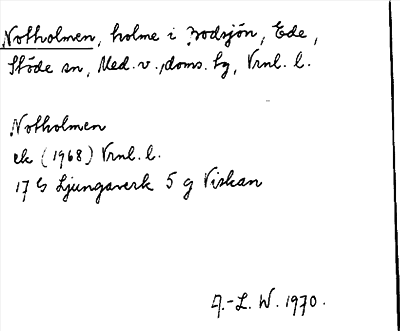 Notholmen, holme i Bodsjön, Ede,
Stöde sn, Med. v., doms. hg, Vrnl. l.
Notholmen
ek (1968) Vrnl. l.
17 G Ljungaverk 5 g Viskan
A.-L. W. 1970.